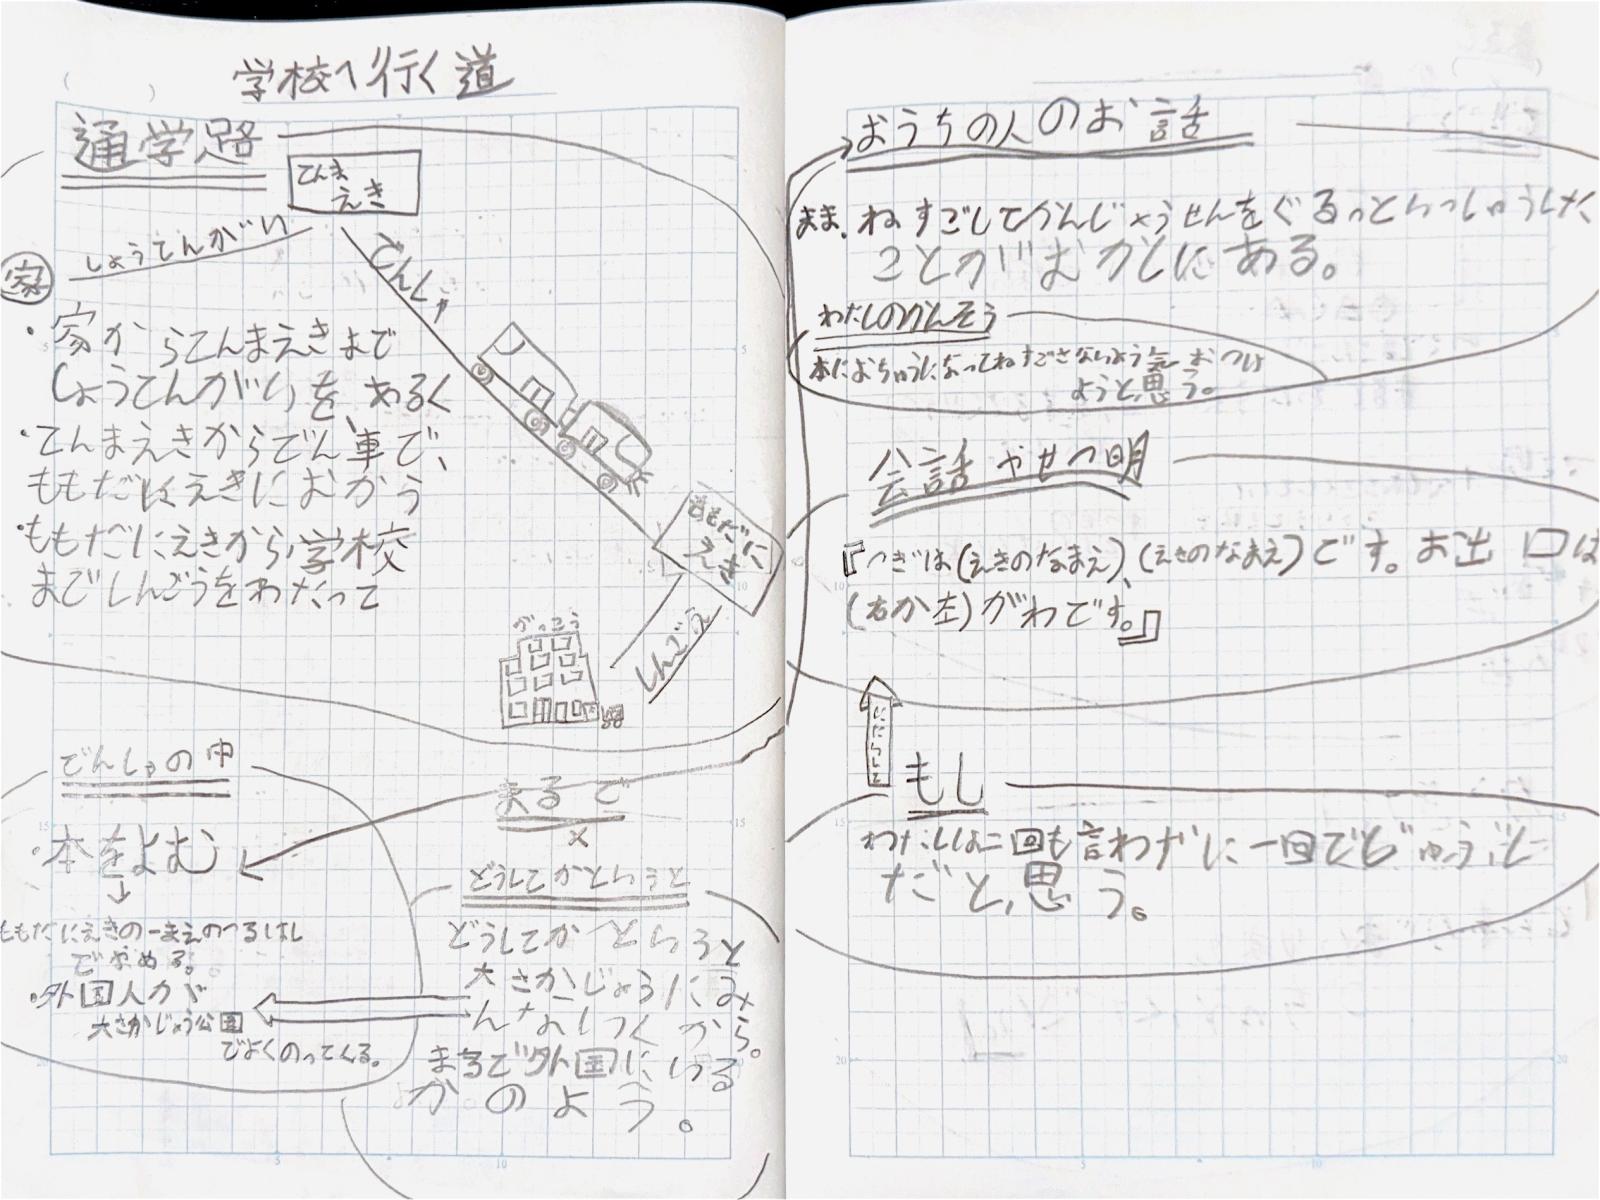 学校へ行く道
通学路
てんま
えき
しょうてんがい
家
でんしゃ
・家からてんまえきまで
しょうてんがいを、あるく
・てんまえきからでん車で、
ももだにえきにむかう
・ももだにえきから学校
までしんごうをわたって
ももだに
えき
しんごう
がっこう
でんしゃの中
・本をよむ
ももだにえきの一まえのつるはし
で
・外国人が
大さかじょう公園
でよくのってくる。
まるで
×
どうしてかというと
どうしてかというと
大さかじょうにみ
んないくから。
まるで外国にいる
かのよう。
おうちの人のお話
まま、ねすごしてかんじょうせんをぐるっといっしゅうした
ことがむかしにある。
わたしのかんそう
本にむちゅうになってねすごさないよう気おつけ
ようと思う。
会話やせつ明
『つぎは(えきのなまえ)、(えきのなまえ)です。お出口は
(右か左)がわです。』
もし
わたしは二回も言わずに一回でじゅうぶん
だと思う。